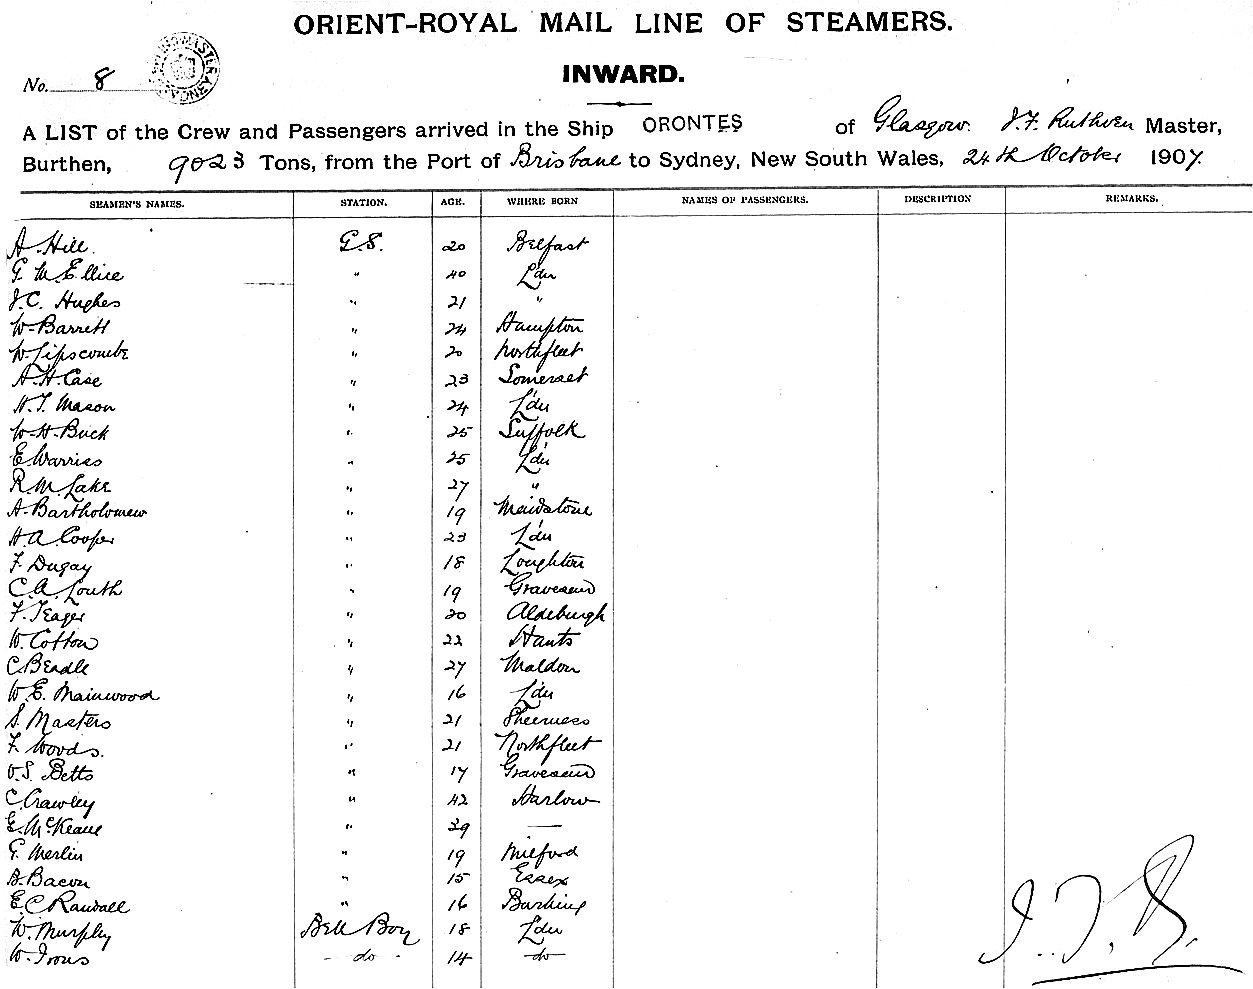 ORIENT-ROYAL MAIL LINE OF STEAMERS.
No. 8
INWARD.
A LIST of the Crew and Passengers arrived in the Ship ORONTES of Glasgow J.F. Ruthven Master,
Burthen, 9023 Tons, from the Port of Brisbane to Sydney, New South Wales, 24th October 1907.
SEAMEN'S NAMES. STATION. AGE. WHERE BORN NAMES OF PASSENGERS. DESCRIPTION REMARKS.
A. Hill. G.S. 20 Belfast
G. McEllice " 40 Ldn
J.C. Hughes " 21 "
W. Barrett " 24 Hampton
W. Lipscombe " 20 Northfleet
A.H. Case " 23 Somerset
H.T. Mason " 24 Ldn
W.H. Buck " 25 Suffolk
E. Warriss " 25 Ldn
R.M. Lake " 27 "
A. Bartholomew " 19 Maidstone
H.A. Cooper " 23 Ldn
F. Dugay " 18 Loughton
C.A. Louth " 19 Gravesend
F. Teager " 20 Aldeburgh
W. Cotton " 22 Hants
C. Beadle " 27 Maldon
W.E. Mainwood " 16 Ldn
S. Masters " 21 Sheerness
F. Woods. " 21 Northfleet
O.S. Betts " 17 Gravesend
C. Crawley " 42 Harlow
E. McKeane " 39 —
G. Merlin " 19 Milford
Bacon " 15 Essex
E.C. Randall " 16 Barking
W. Murphy Bell Boy 18 Ldn
W. Irons do 14 do
J.F.R.